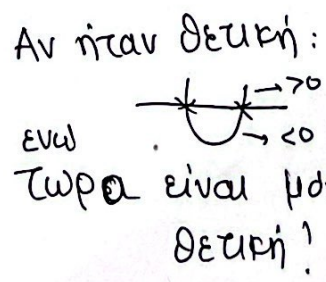 Αν ήταν θετική:
→ >0
→ <0
ενώ
τώρα είναι
θετική!